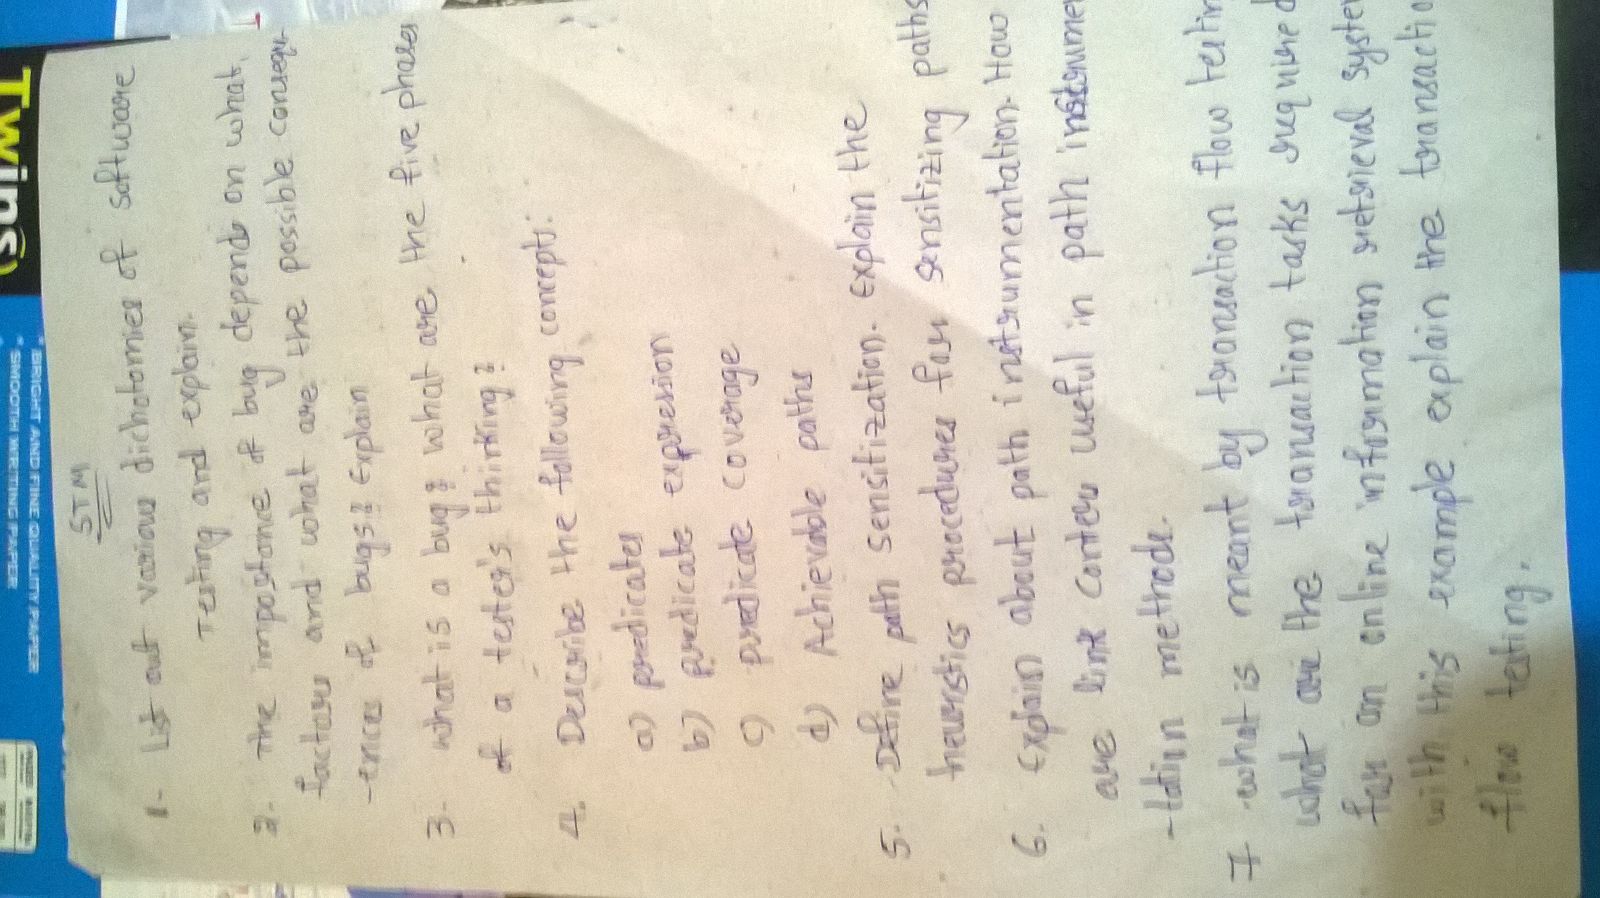 STM
1. List out various dichotomies of software
Testing and explain.
2. The importance of bug depends on what
factors and what are the possible consequ-
-ences of bugs? Explain
3. What is a bug? What are the five phases
of a tester's thinking?
4. Describe the following concepts:
a) predicates
b) predicate expression
c) predicate coverage
d) Achievable paths
5. Define path sensitization. Explain the
heuristics procedures for sensitizing paths
6. Explain about path instrumentation. How
are link conters useful in path instrumen
-tation methods.
7 what is meant by transaction flow testin
what are the transaction tasks required
for an online information retrieval syste
with this example explain the transactio
flow testing.
Twins)
* BRIGHT AND FINE QUALITY PAPER
* SMOOTH WRITING PAPER